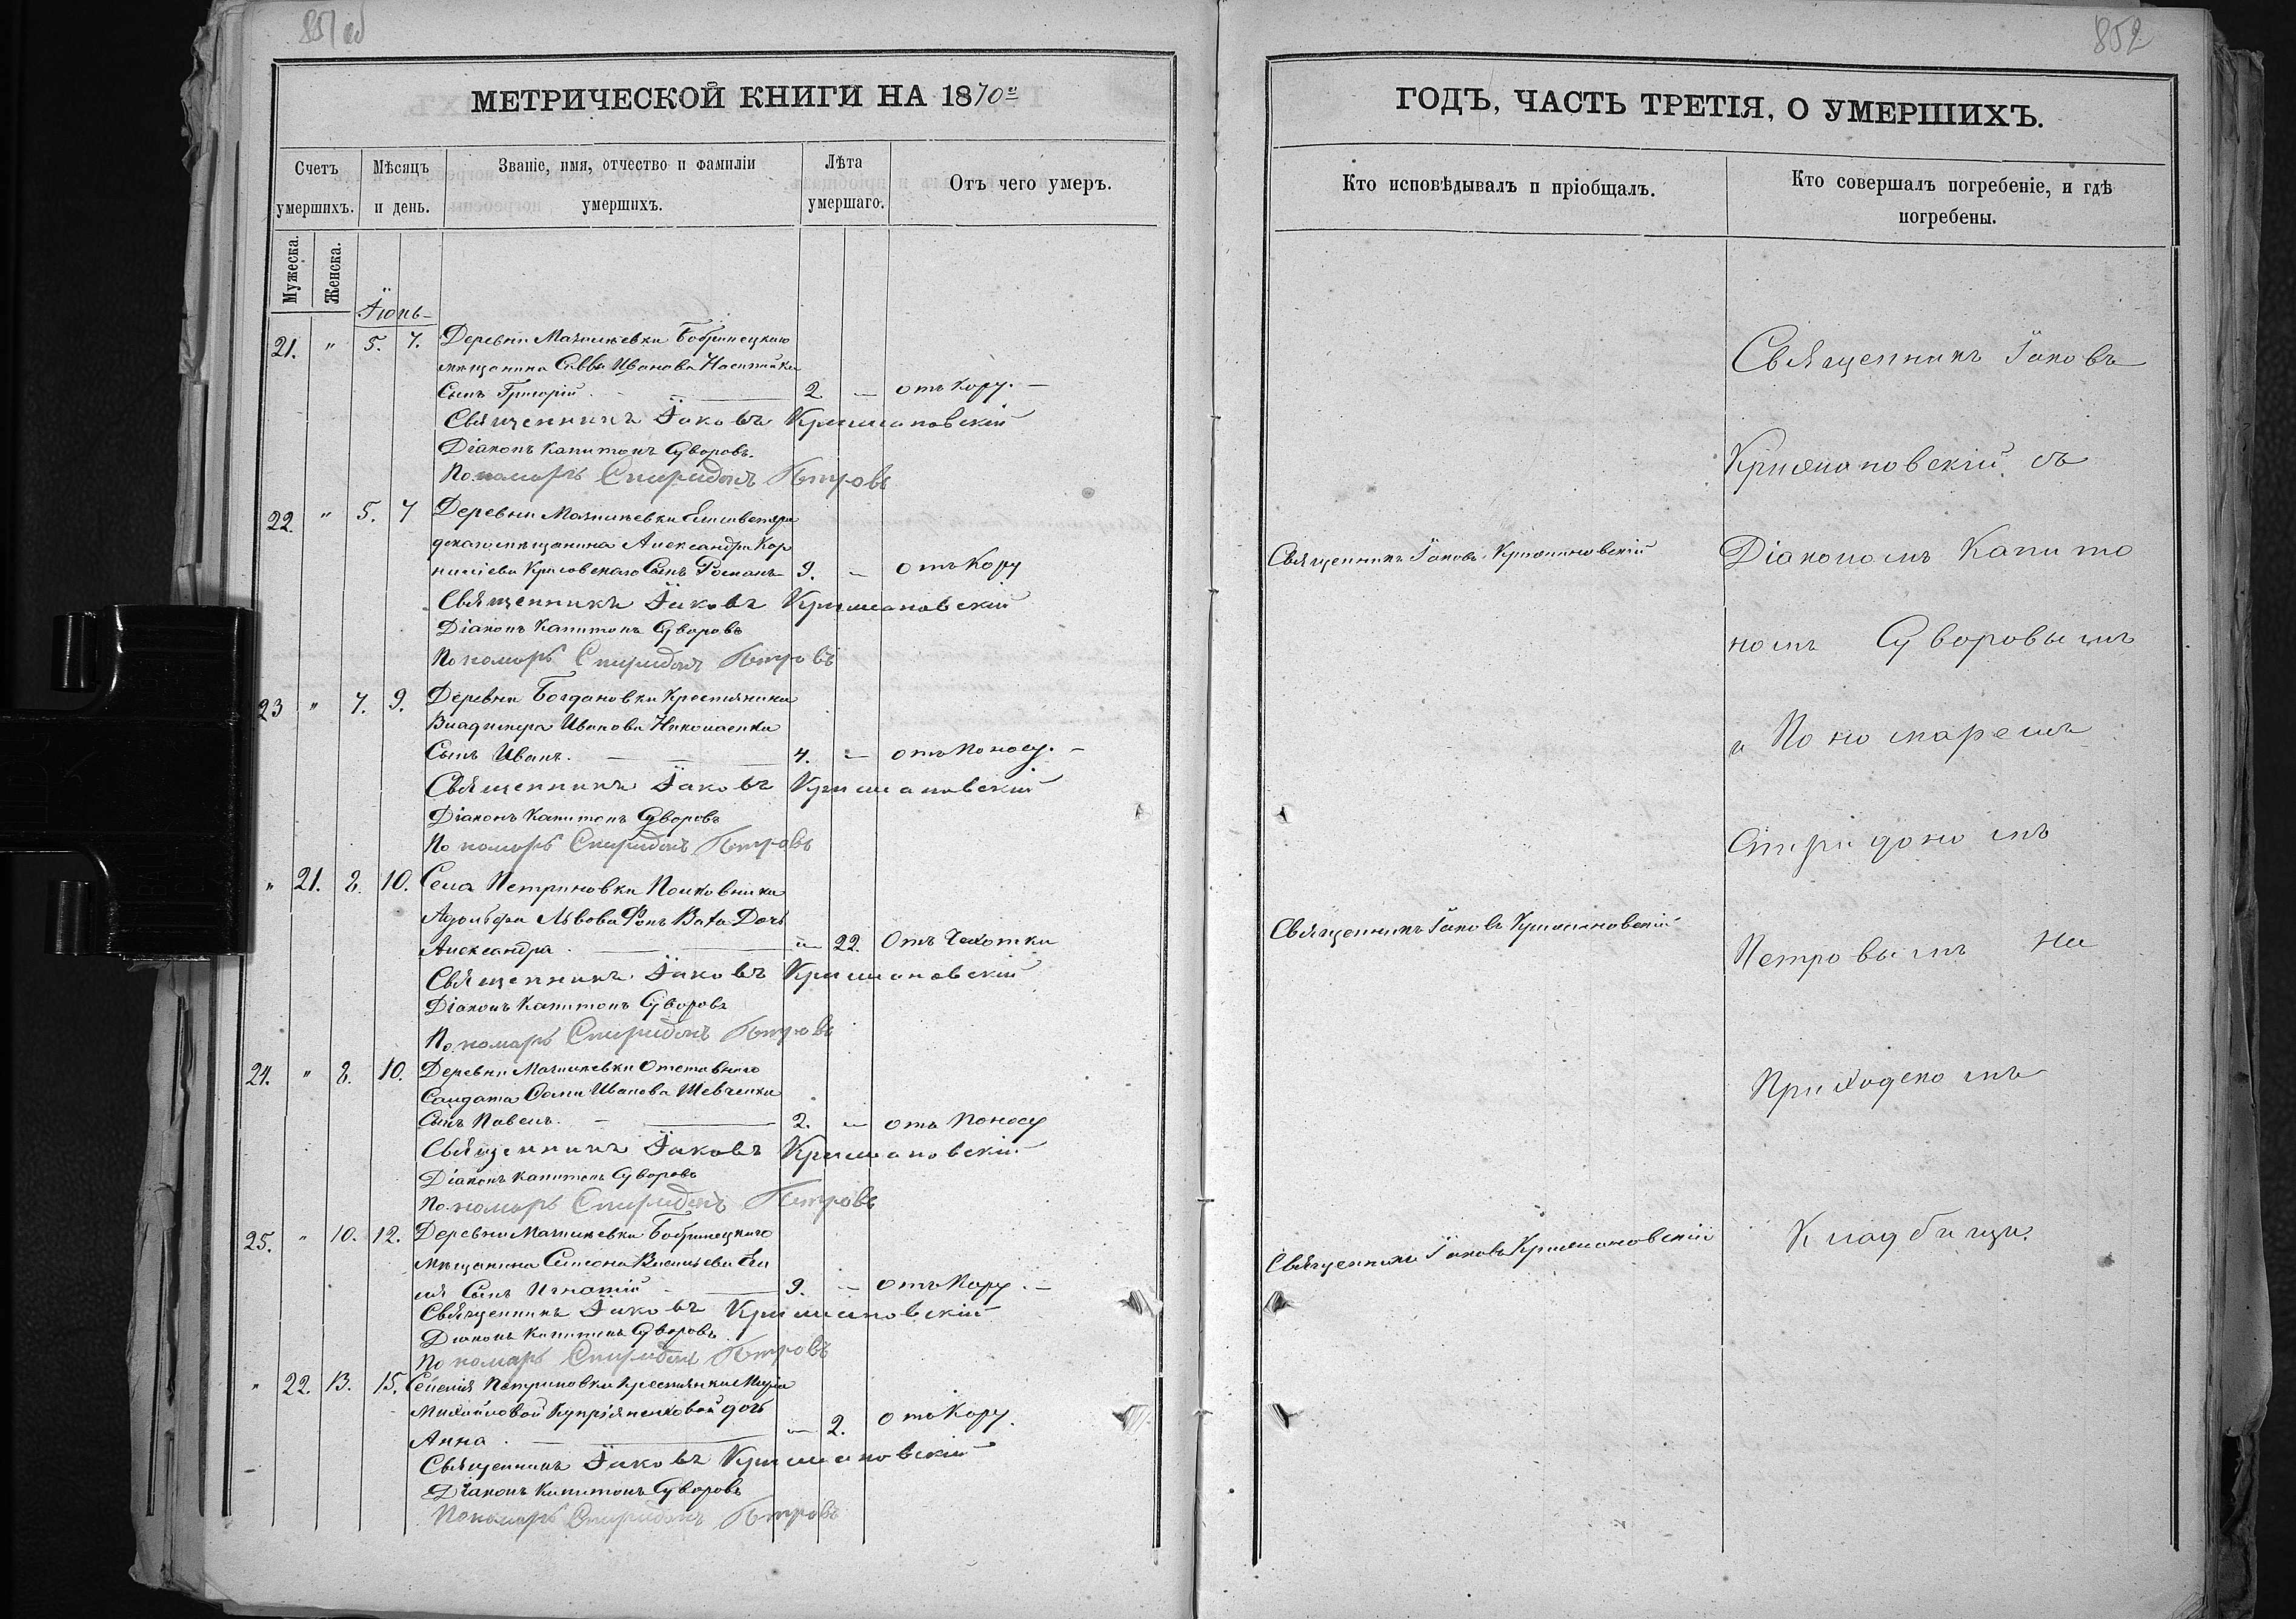 851 об
МЕТРИЧЕСКОЙ КНИГИ НА 1870й
Счетъ умершихъ.
Мѣсяцъ и день.
Званіе, имя, отчество и фамиліи умерщихъ.
Лѣта умершаго.
Отъ чего умеръ.
Мужеска.
Женска.
Іюнь
21. " 5. 7. Деревни Бобринецкого
мѣщанина Саввы Иванова
Сынъ Григорій. — 2. — отъ Кору. —
Священникъ Іаковъ Крижановскій
Діаконъ Капитонъ Суворовъ.
Пономарь Спиридонъ Петровъ
22. " 5. 7 Деревни Елисаветгра
дскаго мѣщанина Александра Кор
ниліева Сынъ Романъ 9. — отъ Кору
Священникъ Іаковъ Крижановскій
Діаконъ Капитонъ Суворовъ
Пономарь Спиридонъ Петровъ
23 " 7. 9. Деревни Богдановки Крестянина
Владимера Иванова Николаенка
Сынъ Иванъ. — 4. — отъ Поносу. —
Священникъ Іаковъ Крижановскій
Діаконъ Капитонъ Суворовъ
Пономарь Спиридонъ Петровъ
" 21. 8. 10. Села Петриновки Полковника
Адольфа Львова Фонъ Дочь
Александра. — " 22. Отъ Чахотки
Священникъ Іаковъ Крижановскій
Діаконъ Капитонъ Суворовъ
Пономарь Спиридонъ Петровъ
24. " 8. 10. Деревни Отставного
Солдата Иванова Шевченка
Сынъ Павелъ. — 2. — отъ Поносу
Священникъ Іаковъ Крижановскій
Діаконъ Капитонъ Суворовъ
Пономарь Спиридонъ Петровъ
25. " 10. 12. Деревни Бобринецкого
мѣщанина Васильева
Сынъ Игнатій — 9. — отъ Кору. —
Священникъ Іаковъ Крижановскій
Діаконъ Капитонъ Суворовъ
Пономарь Спиридонъ Петровъ
" 22. 13. 15. Селенія Петриновки Крестянки Маріи
Михайловой Купріяненковой дочь
Анна. — — 2. отъ Кору.
Священникъ Іаковъ Крижановскій
Діаконъ Капитонъ Суворовъ
Пономарь Спиридонъ Петровъ
852
ГОДЪ, ЧАСТЬ ТРЕТІЯ, О УМЕРШИХЪ.
Кто исповѣдывалъ и пріобщалъ.
Кто совершалъ погребеніе, и гдѣ погребены.
Священникъ Іаковъ Крижановскій
Священникъ Іаковъ Крижановскій
Священникъ Іаковъ Крижановскій
Священникъ Іаковъ
Крижановскій съ
Діакономъ Капито
номъ Суворовымъ
и Пономаремъ
Спиридономъ
Петровымъ На
Приходскомъ
Кладбищи.